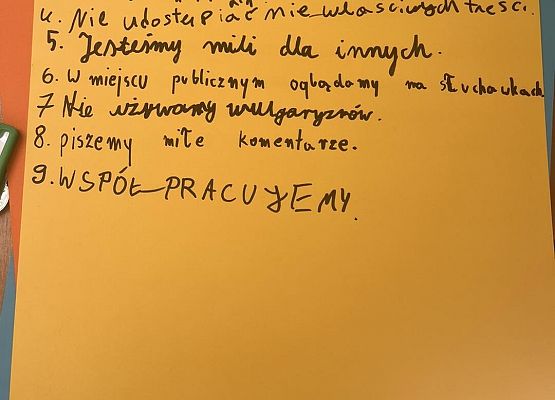 4. Nie udostępiać nie właściwych treści.
5. Jesteśmy mili dla innych.
6. W miejscu publicznym oglądamy na słuchawkach
7 Nie używamy wulgaryzmów.
8. piszemy miłe komentarze.
9. WSPÓŁPRACUJEMY.